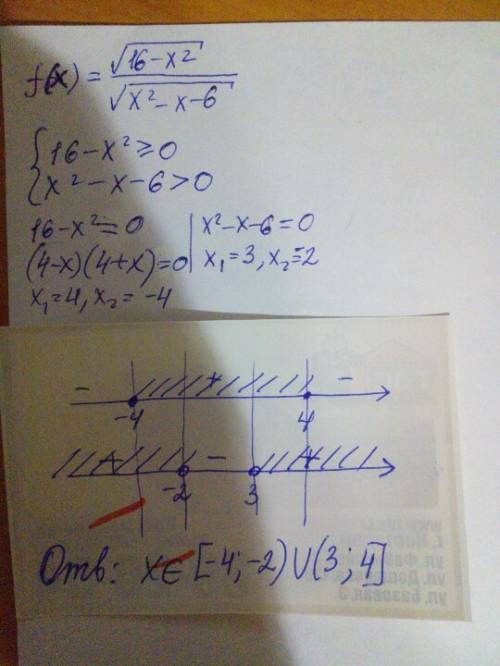 f(x) = √(16-x²) / √(x²-x-6)
{ 16-x² ≥ 0
{ x²-x-6 > 0
16-x² = 0 | x²-x-6 = 0
(4-x)(4+x) = 0 | x₁ = 3, x₂ = -2
x₁ = 4, x₂ = -4
- + -
-4 4
+ - +
-2 3
Отв: x ∈ [-4; -2) ∪ (3; 4]